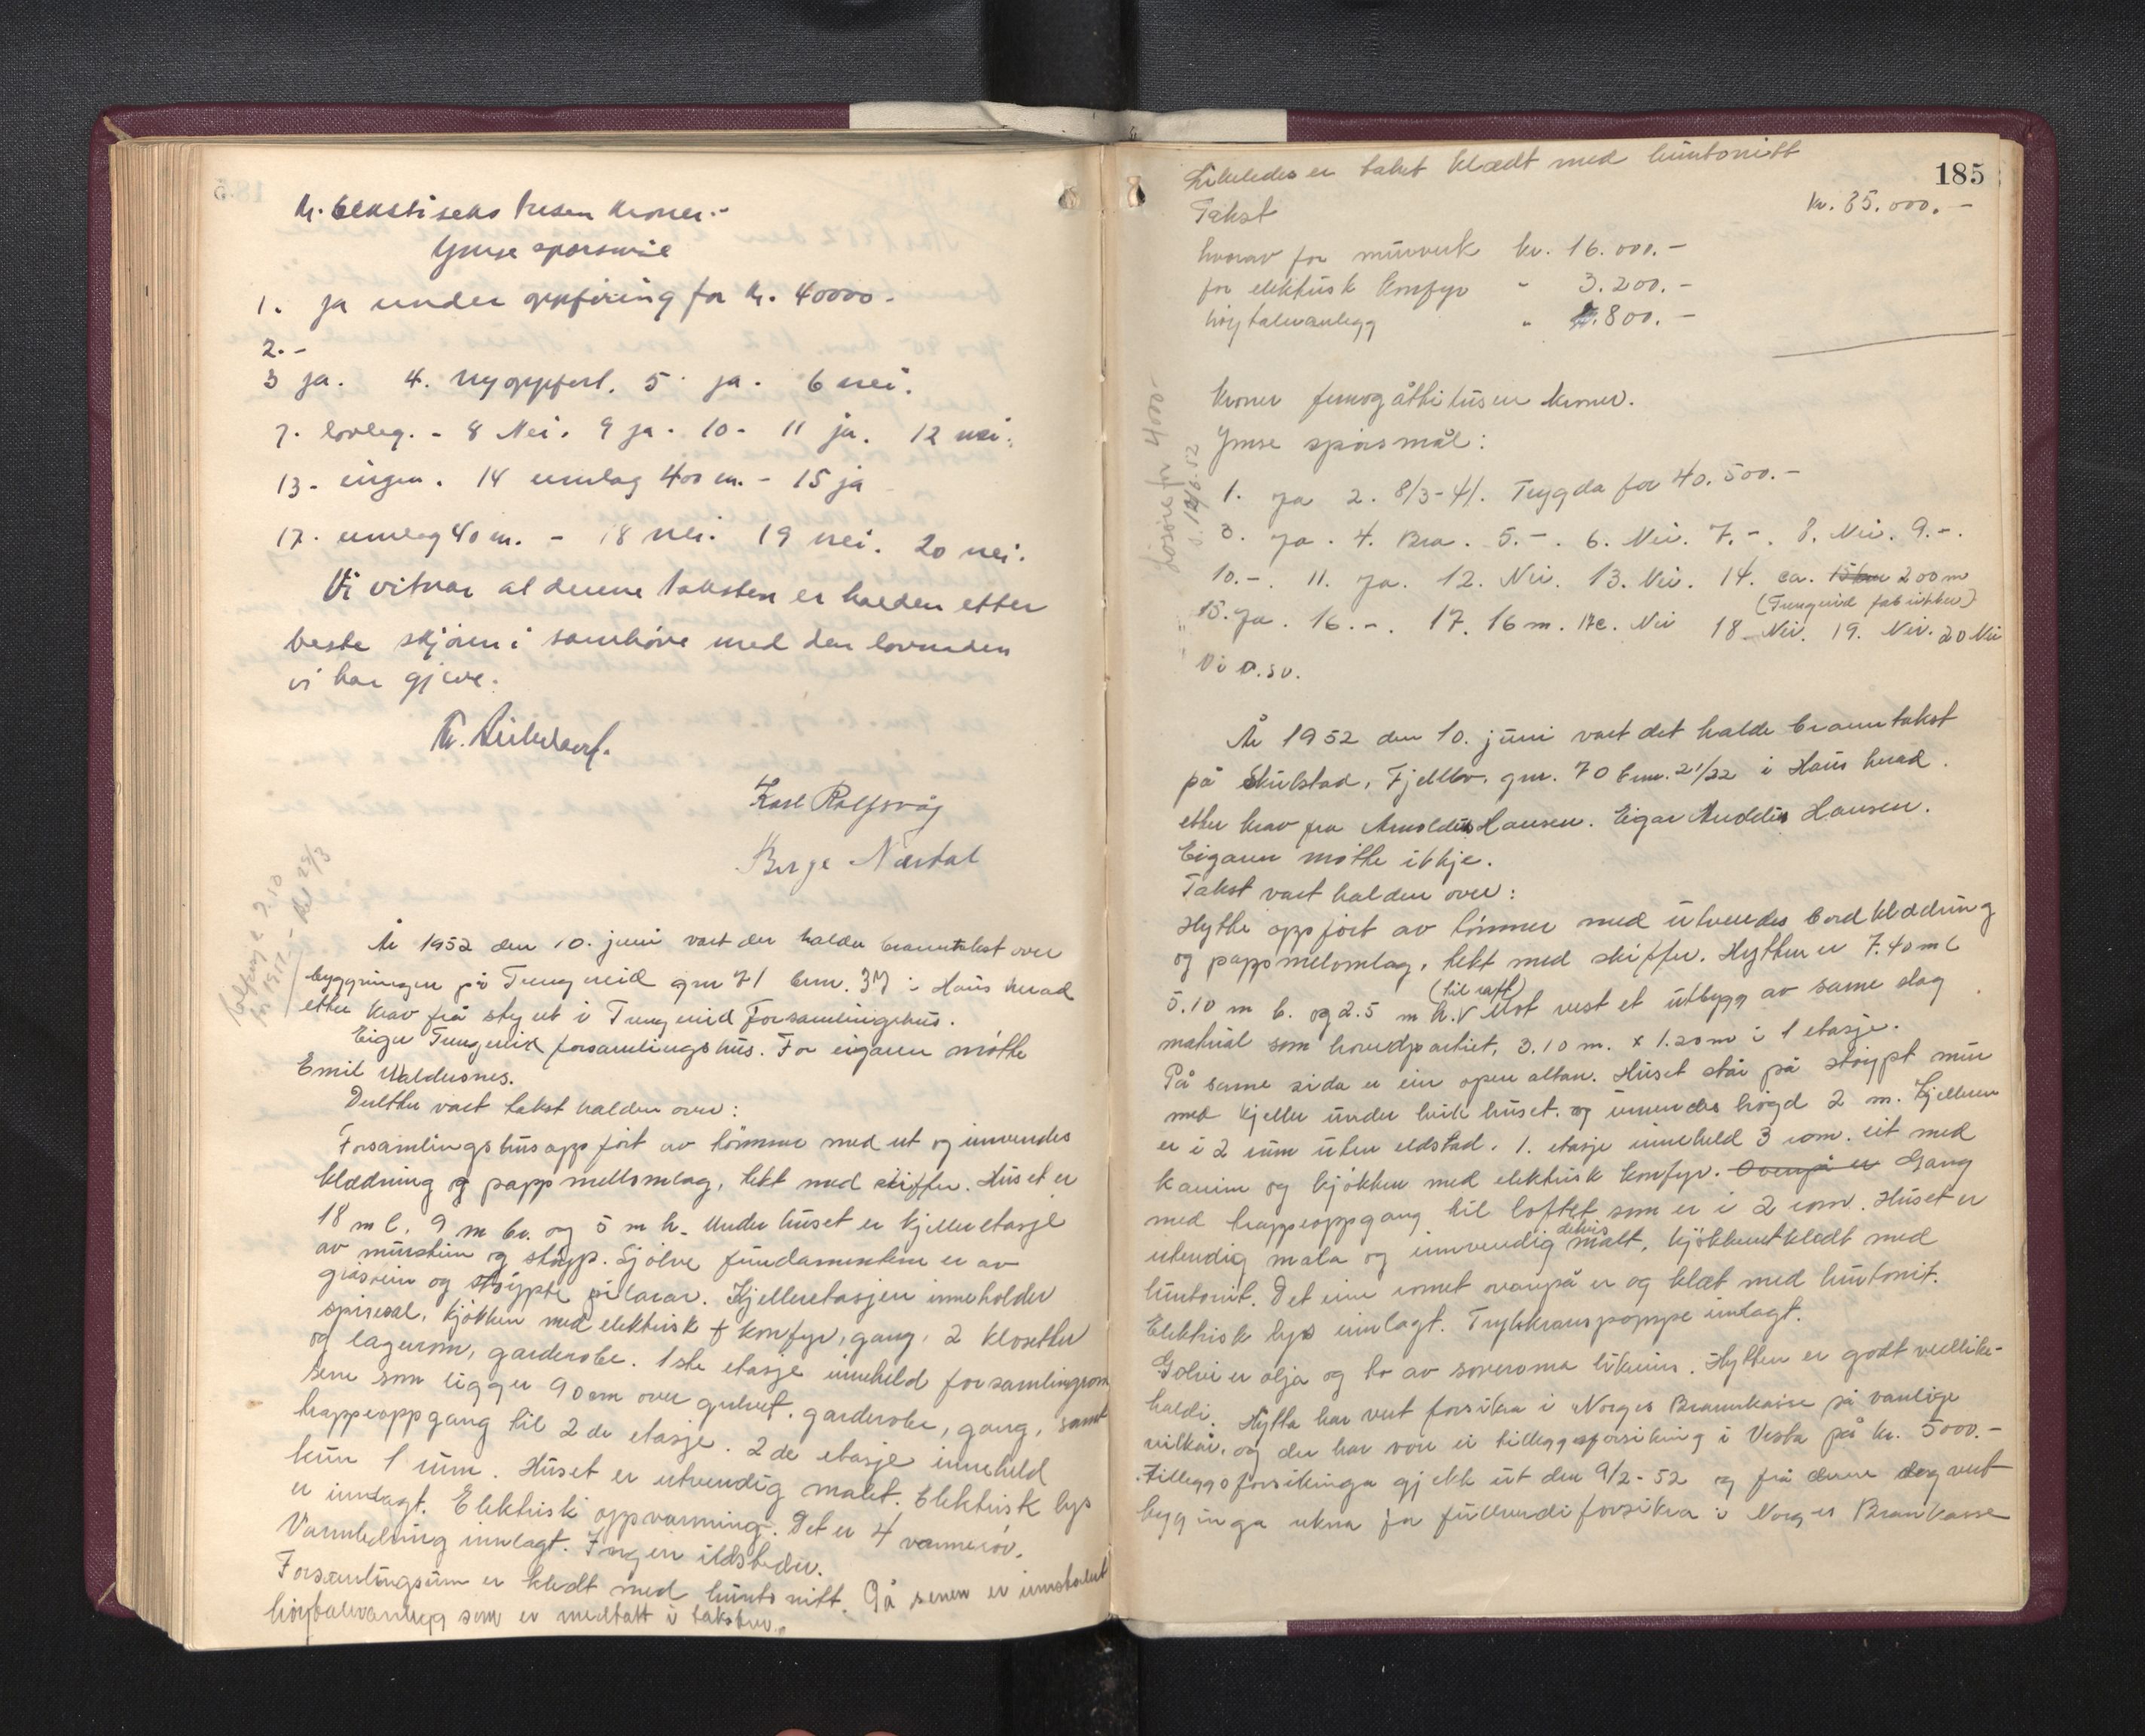 Kr. seksti seks tusen kroner.-
Ymse spørsmål
1. ja under oppføring for kr. 40000.-
2. -
3 ja. 4. ny oppført. 5. ja. 6 nei.
7. lovleg. - 8 Nei. 9 ja. 10- 11 ja. 12 nei.
13. ingen. 14 umlag 400 m. - 15 ja
17. umlag 40 m. - 18 nei. 19 nei. 20 nei.
Vi vitnar at denne taksten er halden etter
beste skjøn i samhøve med den lovnaden
vi har gjeve.
Karl Rolfsvåg
Børge Nærdal
År 1952 den 10. juni vart der halde branntakst over
byggningen på Tungeneid gnr 71 bnr. 37 i Haus herad
etter krav frå styret i Tungeneid Forsamlingshus.
Eigar Tungeneid forsamlingshus. For eigaren møtte
Emil Valdersnes.
Deretter vart takst halden over:
Forsamlingshus oppført av tømmer med ut og innvendes
klædning og papp mellomlag, tekt med skiffer. Huset er
18 m l. 9 m br. og 5 m h. Under huset er kjelleretasje
av murstein og støyp. Sjølve fundamentene er av
gråstein og støypte pilarar. Kjelleretasjen inneholder
spisesal, kjøkken med elektrisk komfyr, gang, 2 klosetter
og lagerrom, garderobe. 1ste etasje inneheld forsamlingsrom
sene som ligger 90 cm over gulvet, garderobe, gang, samt
trappeoppgang til 2de etasje. 2de etasje inneheld
kun 1 rum. Huset er utvendig malt. Elektrisk lys
er innlagt. Elektrisk oppvarming. Det er 4 varmerør.
Vannledning innlagt. Ingen ildsteder.
Forsamlingsrum er kledt med huntonitt. På senen er innstalert
høytaleranlegg som er medtatt i taksten.
185
Likeledes er taket klædt med huntonitt
Takst kr. 85.000.-
hvorav for murverk kr. 16.000.-
for elektrisk komfyr " 3.200.-
høytaleranlegg " 800.-
Kroner femogåttitusen kroner.
Ymse spørsmål:
1. Ja 2. 8/3-41. Trygda for 40.500.-
3. Ja. 4. Bra. 5.-. 6. Nei. 7.-. 8. Nei. 9.-.
10.-. 11. Ja. 12. Nei. 13. Nei. 14. ca. 200 m
(Tungeneid fabrikker)
15. Ja. 16.-. 17. 16 m. 17c. Nei 18. Nei. 19. Nei. 20 Nei
Vi o.sv.
År 1952 den 10. juni vart det halde branntakst
på Skulstad, Fjellbv. gnr. 70 bnr. 21/22 i Haus herad.
etter krav fra Arnoldus Hansen. Eigar Hansen.
Eigaren møtte ikkje.
Takst vart halden over:
Hytte oppført av tømmer med utvendes bordklædning
og papp melomlag, tekt med skiffer. Hytten er 7.40 m l
(til raft)
5.10 m b. og 2.5 m h. Mot vest et utbygg av same slag
material som hovedpartiet, 3.10 m. x 1.20 m i 1 etasje.
På same sida er ein open altan. Huset står på støypt mur
med kjeller under heile huset. og innvendes høgd 2 m. Kjelleren
er i 2 rum uten eldstad. 1. etasje inneheld 3 rom. eit med
kamin og kjøkken med elektrisk komfyr. Ovenpå er Gang
med trappeoppgang til loftet som er i 2 rom. Huset er
delvis
utvendig mala og innvendig malt, kjøkkenet kledt med
huntonit. Det eine romet ovanpå er og klæt med huntonit.
Elektrisk lys innlagt. Trykkranspompe innlagt.
Golvi er olja og to av soveroma likeins. Hytten er godt vedlike-
haldi. Hytta har vert forsikra i Norges Brannkasse på vanlige
vilkår, og der har vore ei tilleggsforsikring i Vesta på kr. 5000.-
Tilleggsforsikringa gjekk ut den 9/2-52 og frå denne dag vert
bygginga rekna for fullverdiforsikra i Norges Brannkasse